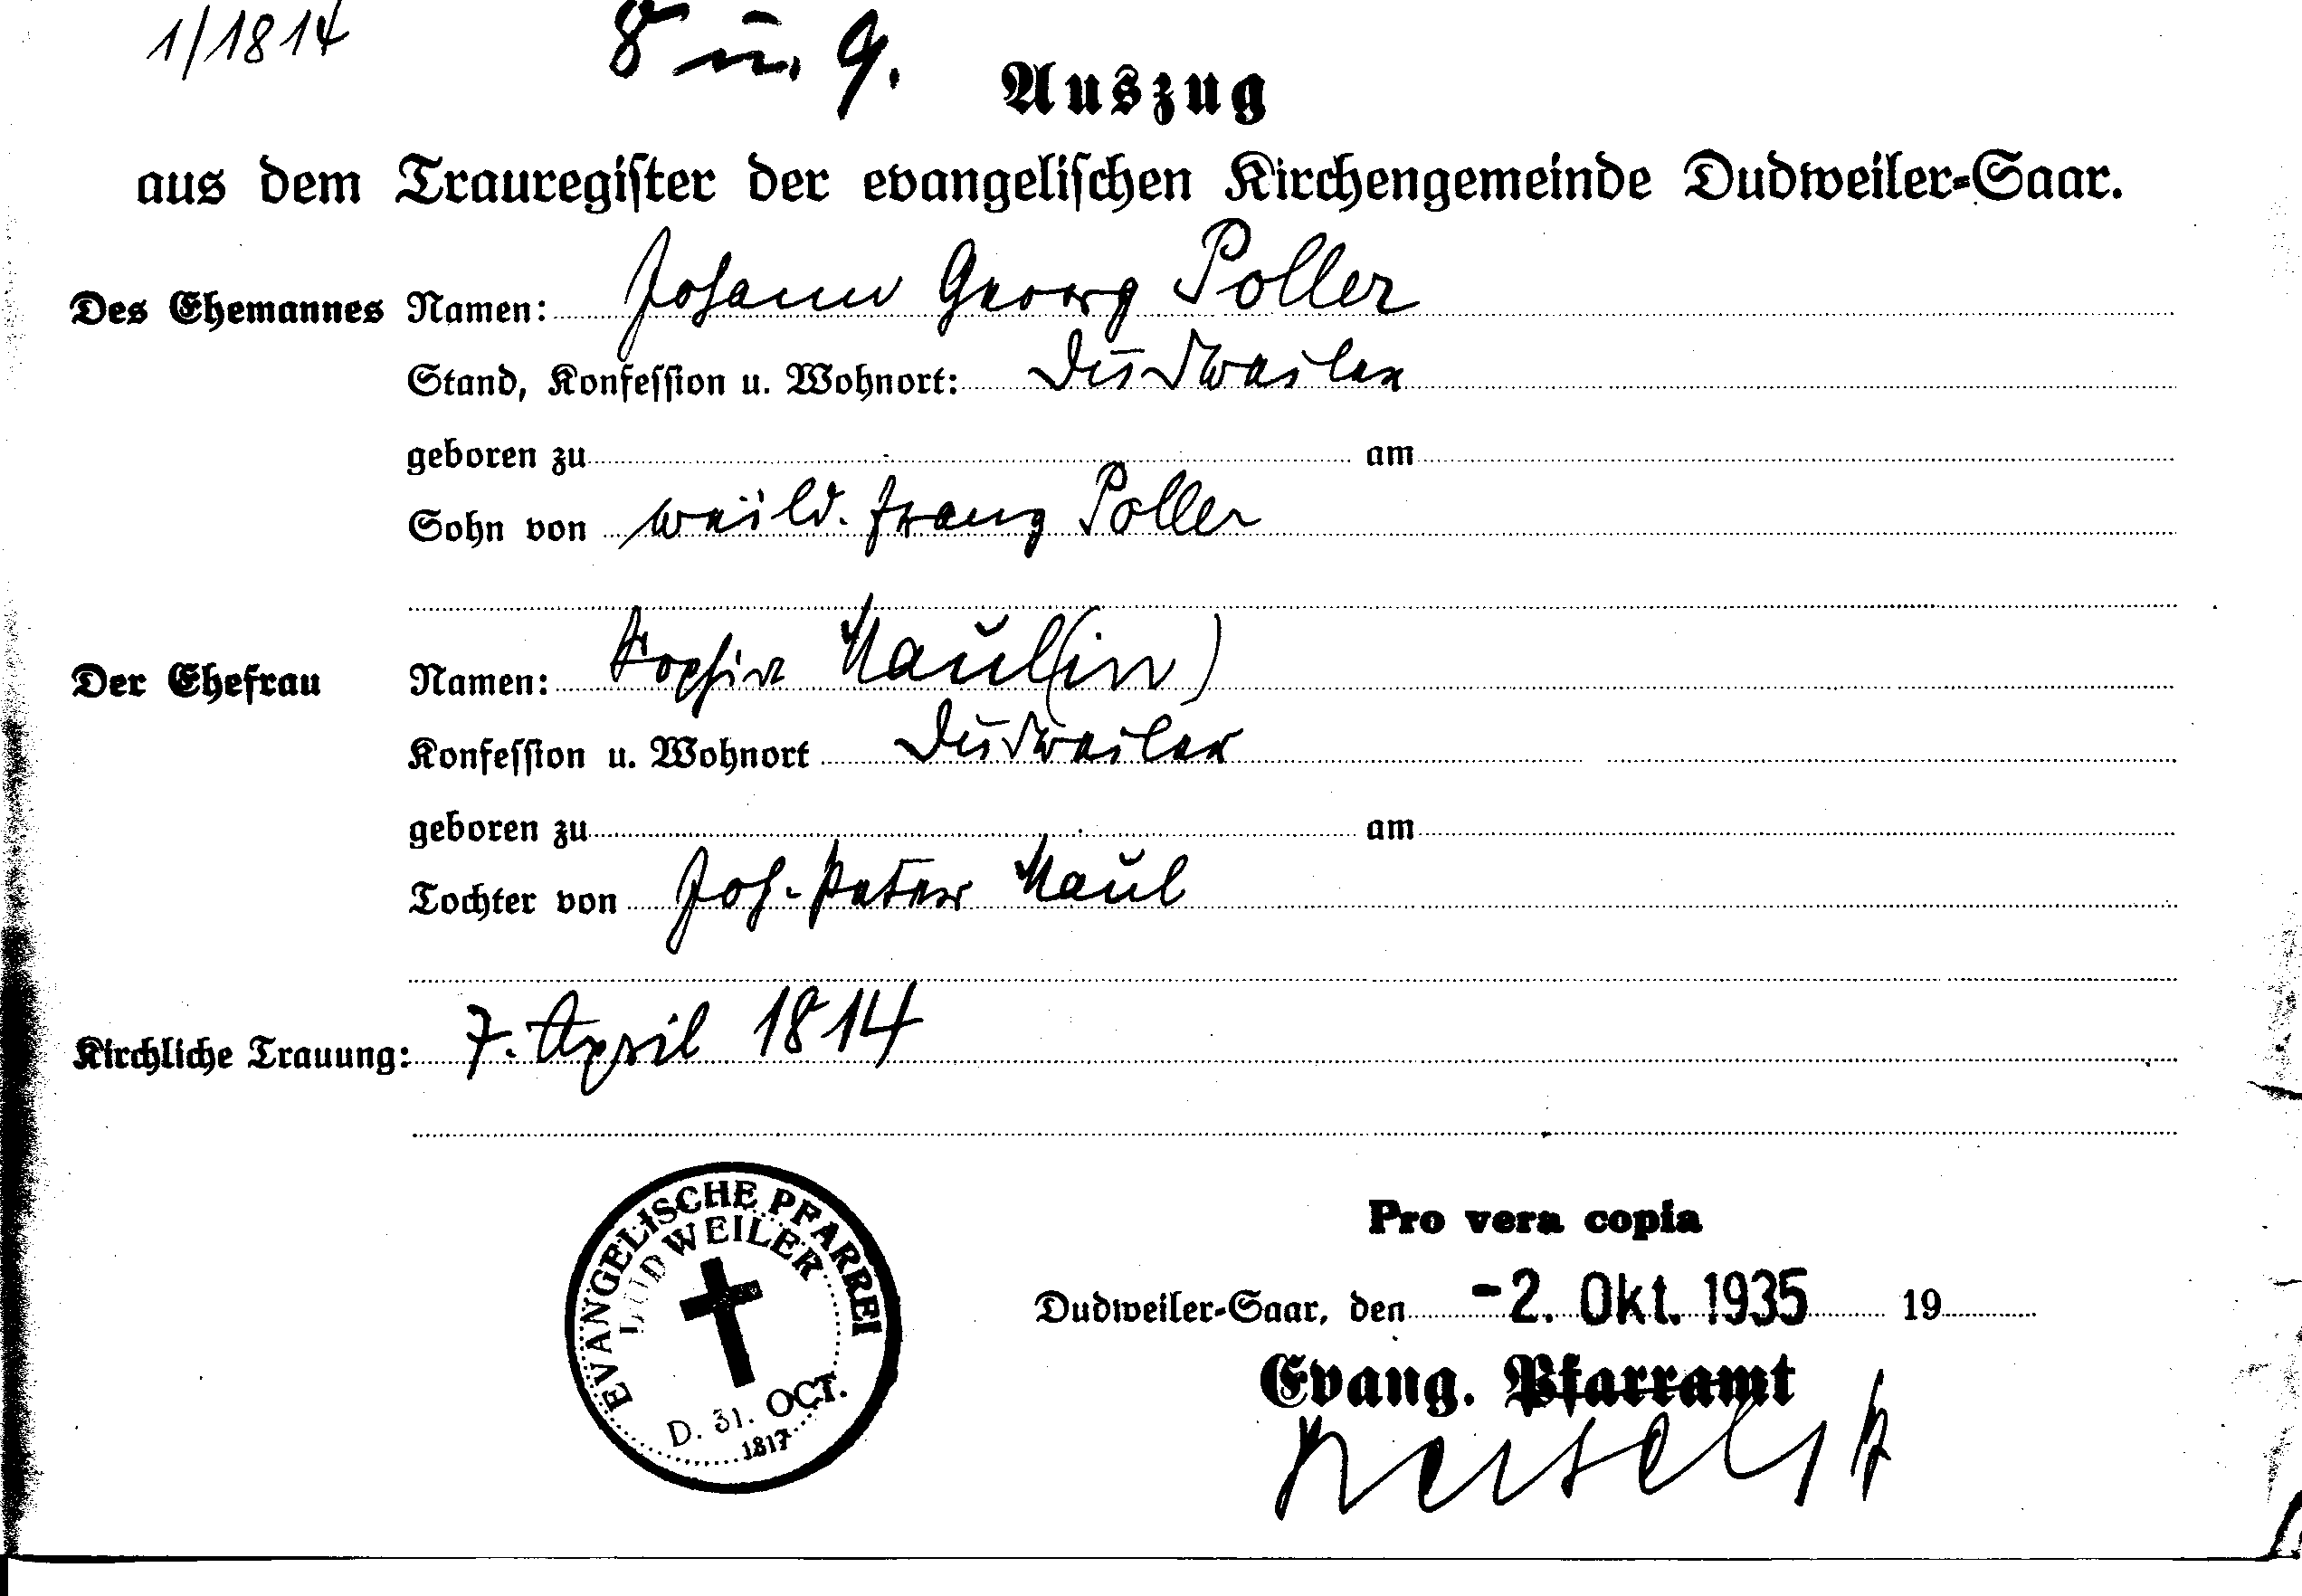 1/1814
8 u. 9.
Auszug
aus dem Trauregister der evangelischen Kirchengemeinde Dudweiler-Saar.
Des Ehemannes Namen: Johann Georg Poller
Stand, Konfession u. Wohnort: Dudweiler
geboren zu am
Sohn von weild. Franz Poller
Der Ehefrau Namen: Sophie Maul(in)
Konfession u. Wohnort Dudweiler
geboren zu am
Tochter von Joh. Peter Maul
Kirchliche Trauung: 7. April 1814
EVANGELISCHE PFARREI
DUDWEILER
D. 31. OCT.
1817
Pro vera copia
Dudweiler-Saar, den -2. Okt. 1935 19
Evang. Pfarramt